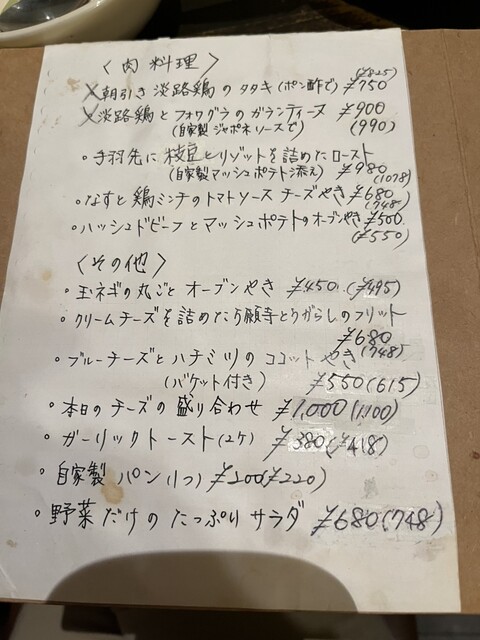 〈肉料理〉
(¥825)
×朝引き淡路鶏のタタキ(ポン酢で) ¥750
×淡路鶏とフォワグラのガランティーヌ ¥900
(自家製ジャポネソースで) (990)
・手羽先に枝豆とリゾットを詰めたロースト
(自家製マッシュポテト添え) ¥980
(1078)
・なすと鶏ミンチのトマトソースチーズやき ¥680
(748)
・ハッシュドビーフとマッシュポテトのオーブンやき ¥500
(¥550)
〈その他〉
・玉ネギの丸ごとオーブンやき ¥450 (¥495)
・クリームチーズを詰めた万願寺とうがらしのフリット
¥680
(748)
・ブルーチーズとハチミツのココットやき
(バケット付き) ¥550(615)
・本日のチーズの盛り合わせ ¥1,000(1,100)
・ガーリックトースト(2ケ) ¥380(¥418)
・自家製パン(1つ) ¥200(¥220)
・野菜だけのたっぷりサラダ ¥680(748)